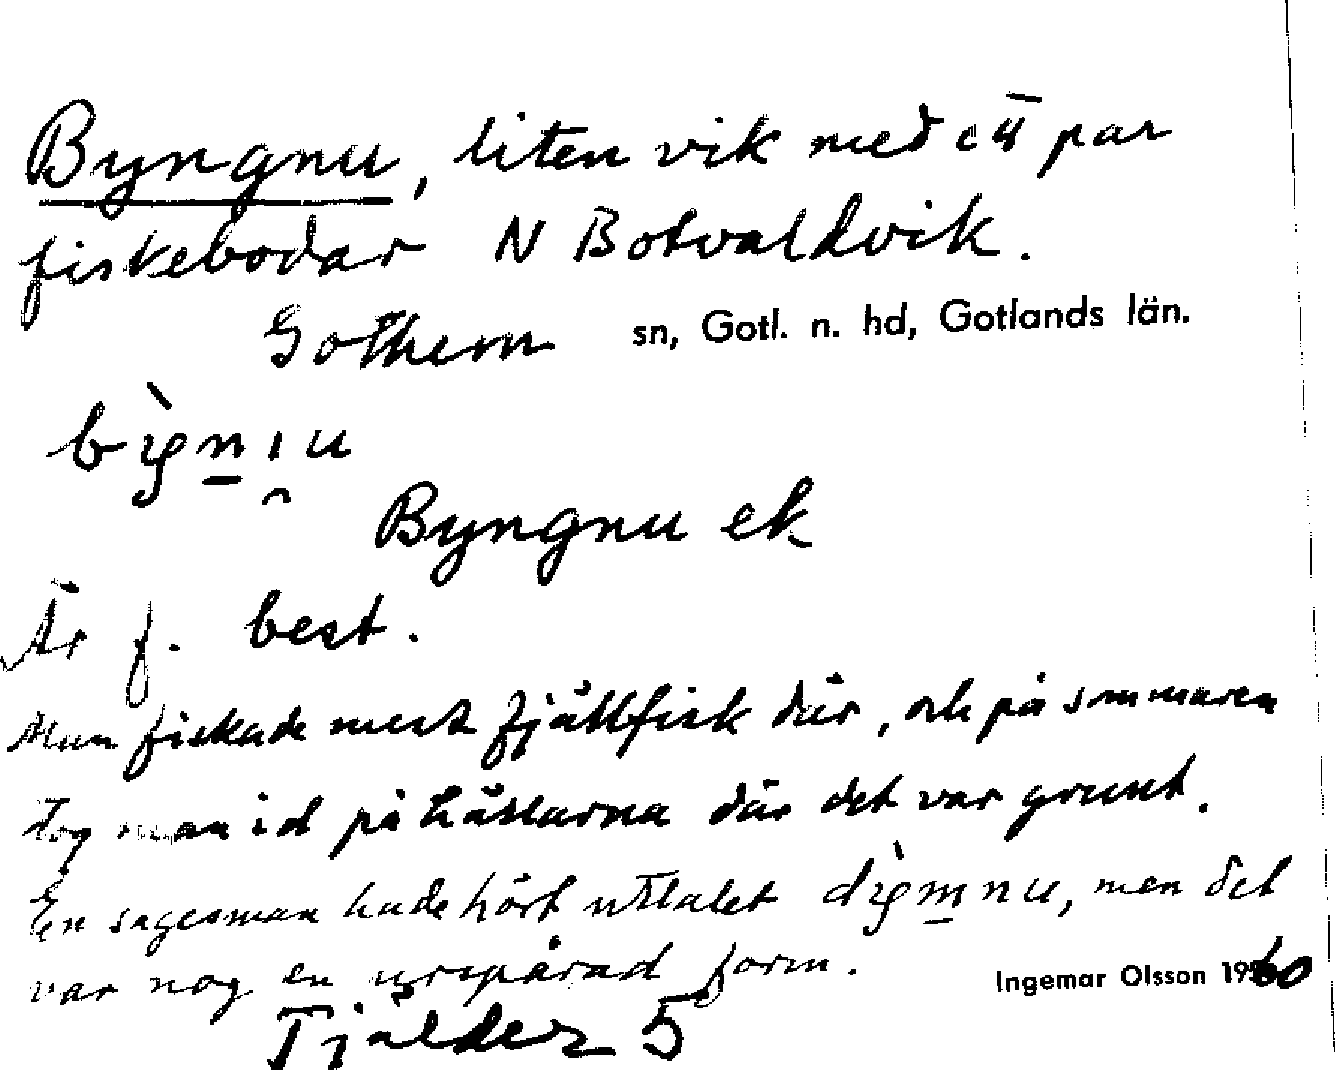 Byngnu, liten vik med ett par
fiskebodar N Botvaldvik.
Gothem sn, Gotl. n. hd, Gotlands län.
Byngnu ek
Är f. best.
Man fiskade mest fjällfisk där, och på sommaren
tog man id på hällarna där det var grunt.
En sagesman hade hört uttalet men det
var nog en urspårad form.
Ingemar Olsson 1960
Tjälder 5